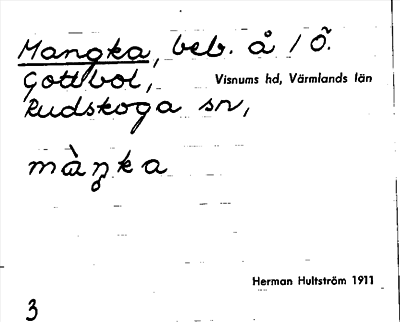 Mangka, beb. å / Ö.
Gottbol, Visnums hd, Värmlands län
Rudskoga sn,
màŋ̥ka
Herman Hultström 1911
3